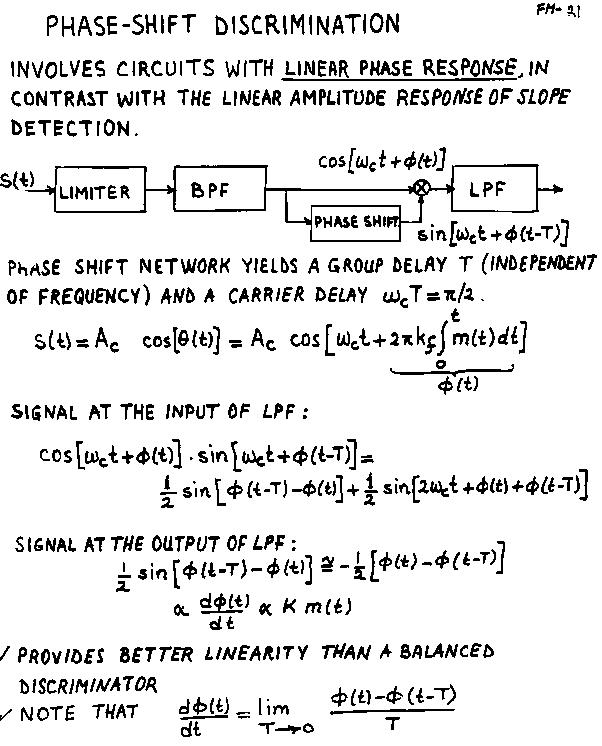 FM-21
PHASE-SHIFT DISCRIMINATION
INVOLVES CIRCUITS WITH LINEAR PHASE RESPONSE, IN
CONTRAST WITH THE LINEAR AMPLITUDE RESPONSE OF SLOPE
DETECTION.
cos[ω_c t+ϕ(t)]
S(t) LIMITER BPF ⊗ LPF
PHASE SHIFT
sin[ω_c t+ϕ(t-T)]
PHASE SHIFT NETWORK YIELDS A GROUP DELAY T (INDEPENDENT
OF FREQUENCY) AND A CARRIER DELAY ω_c T = π/2.
S(t) = A_c cos[θ(t)] = A_c cos[ω_c t + 2πk_f ∫_0^t m(t)dt]
ϕ(t)
SIGNAL AT THE INPUT OF LPF:
cos[ω_c t+ϕ(t)] · sin[ω_c t+ϕ(t-T)] =
1/2 sin[ϕ(t-T)-ϕ(t)] + 1/2 sin[2ω_c t+ϕ(t)+ϕ(t-T)]
SIGNAL AT THE OUTPUT OF LPF:
1/2 sin[ϕ(t-T)-ϕ(t)] ≅ -1/2[ϕ(t)-ϕ(t-T)]
∝ dϕ(t)/dt ∝ K m(t)
✓ PROVIDES BETTER LINEARITY THAN A BALANCED
DISCRIMINATOR
✓ NOTE THAT dϕ(t)/dt = lim T→0 ϕ(t)-ϕ(t-T)/T